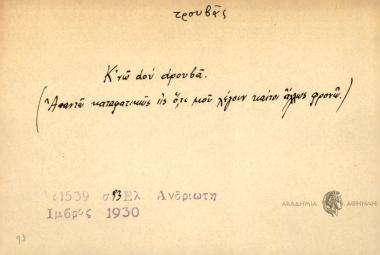 τρουβᾶς
Κ'νῶ σοὺ τρουβᾶ.
(Ἀπαντῶ καταφατικῶς εἰς ὅ,τι μοῦ λέγουν καίτοι ἄλλως φρονῶ.)
1539 σ 93 Ελ Ανδριωτη
Ιμβρος 1930
ΑΚΑΔΗΜΙΑ ΑΘΗΝΩΝ
93